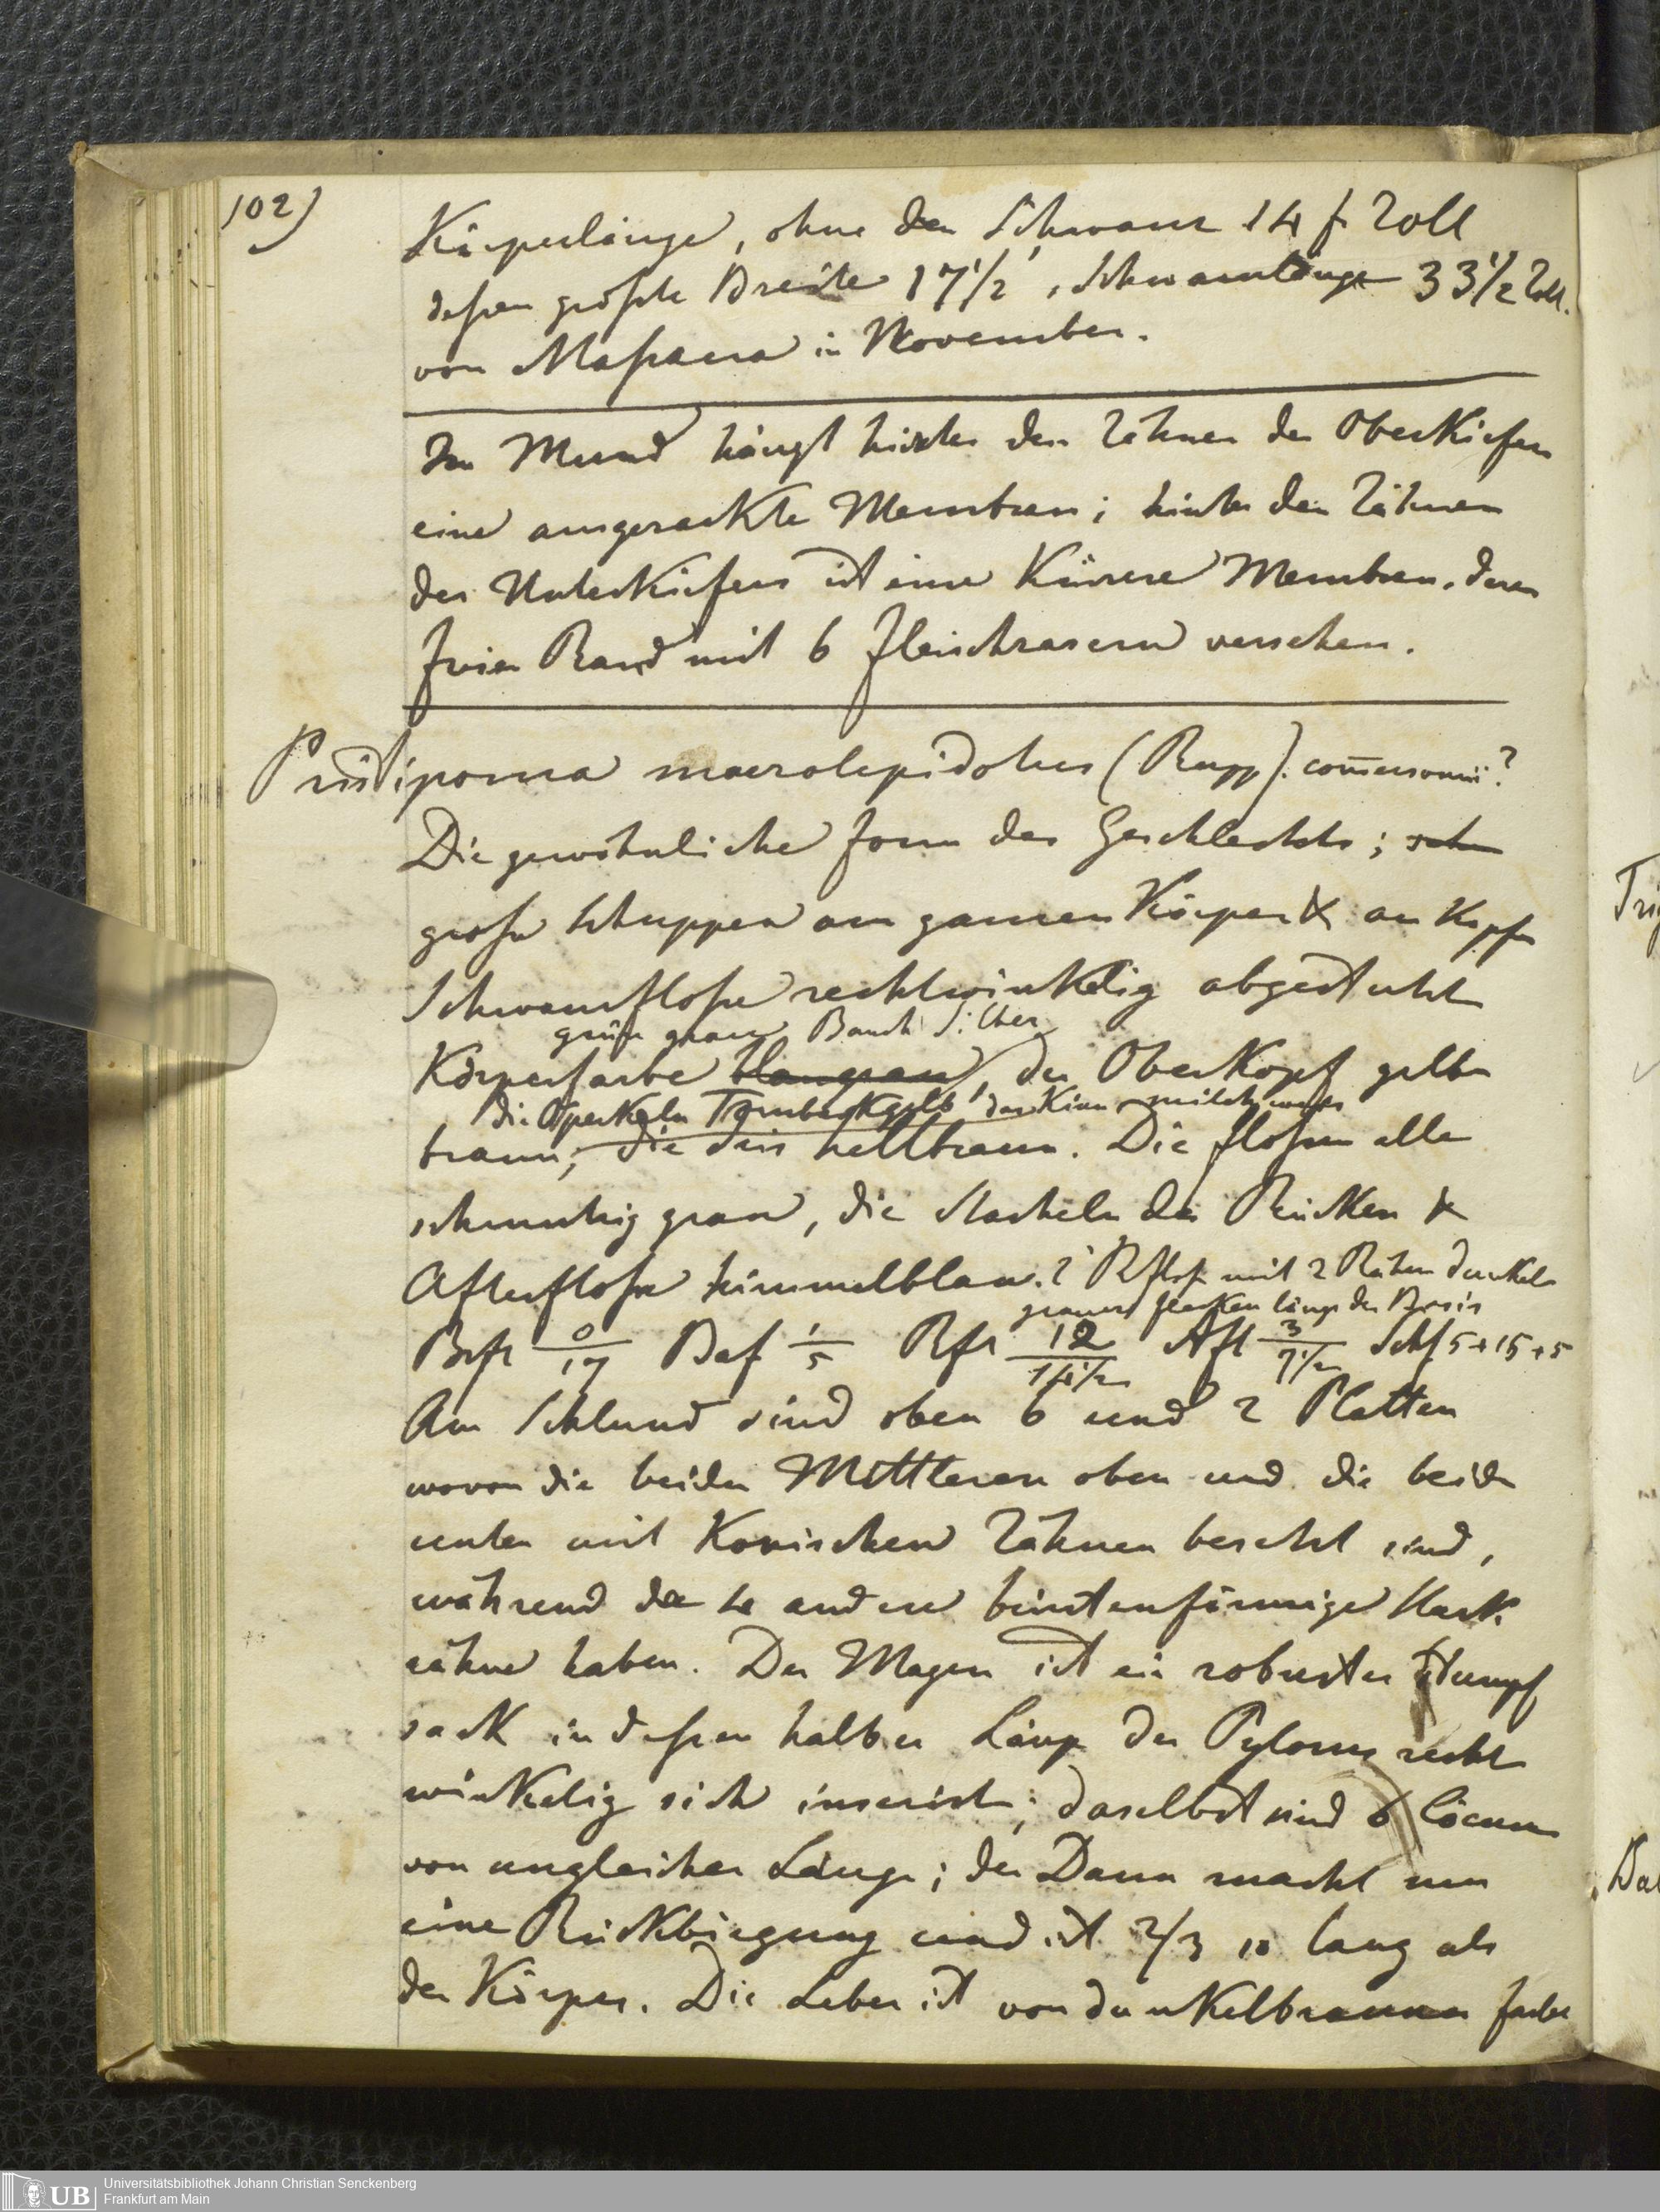 102)
Körperlänge, ohne den Schwanz 14 f. Zoll
dessen größte Breite 17 1/2', Schwanzlänge 33 1/2 Zoll.
von Massaua in November.
Im Mund hängt hinter den Zähnen der Oberkiefer
eine ausgezackte Membran; hinter den Zähnen
des Unterkiefers ist eine kürzere Membran, deren
freier Rand mit 6 Fleischzasern versehen.
Pristipoma macrolepidotus (Rupp). com̄ersonii?
Die gewöhnliche Form des Geschlechts; sehr
große Schuppen am ganzen Körper & am Kopfe
Schwanzflosse rechtwinkelig abgestutzt
grün grau Bauch Silber
Körperfarbe blaugrau, der Oberkopf gelb
die Operkeln Tombackgelb, das Kinn milchweis
braun; die Iris hellbraun. Die Flossen alle
schmutzig grau, die Stacheln der Rücken &
Afterflosse himmelblau. ? Rflosse mit 2 Reihen dunkel
grauer Flecken längs der Basis
Brfl 0/17 Baf 1/5 Rfl 12/14 1/2 Afl 3/7 1/2 Schf 5+15+5
Am Schlund sind oben 6 und 2 Platten
wovon die beiden Mittleren oben und die beide
unten mit Konischen Zähnen besetzt sind,
während die 4 andere bürstenförmige Hack
zähne haben. Der Magen ist ein robuster Stumpf
sack in dessen halber Länge der Pylorus recht
winkelig sich inserirt; daselbst sind 6 Cöcums
von ungleicher Länge; der Darm macht nur
eine Rückbiegung und ist 2/3 so lang als
der Körper. Die Leber ist von dunkelbrauner Farbe
Universitätsbibliothek Johann Christian Senckenberg
Frankfurt am Main
UB